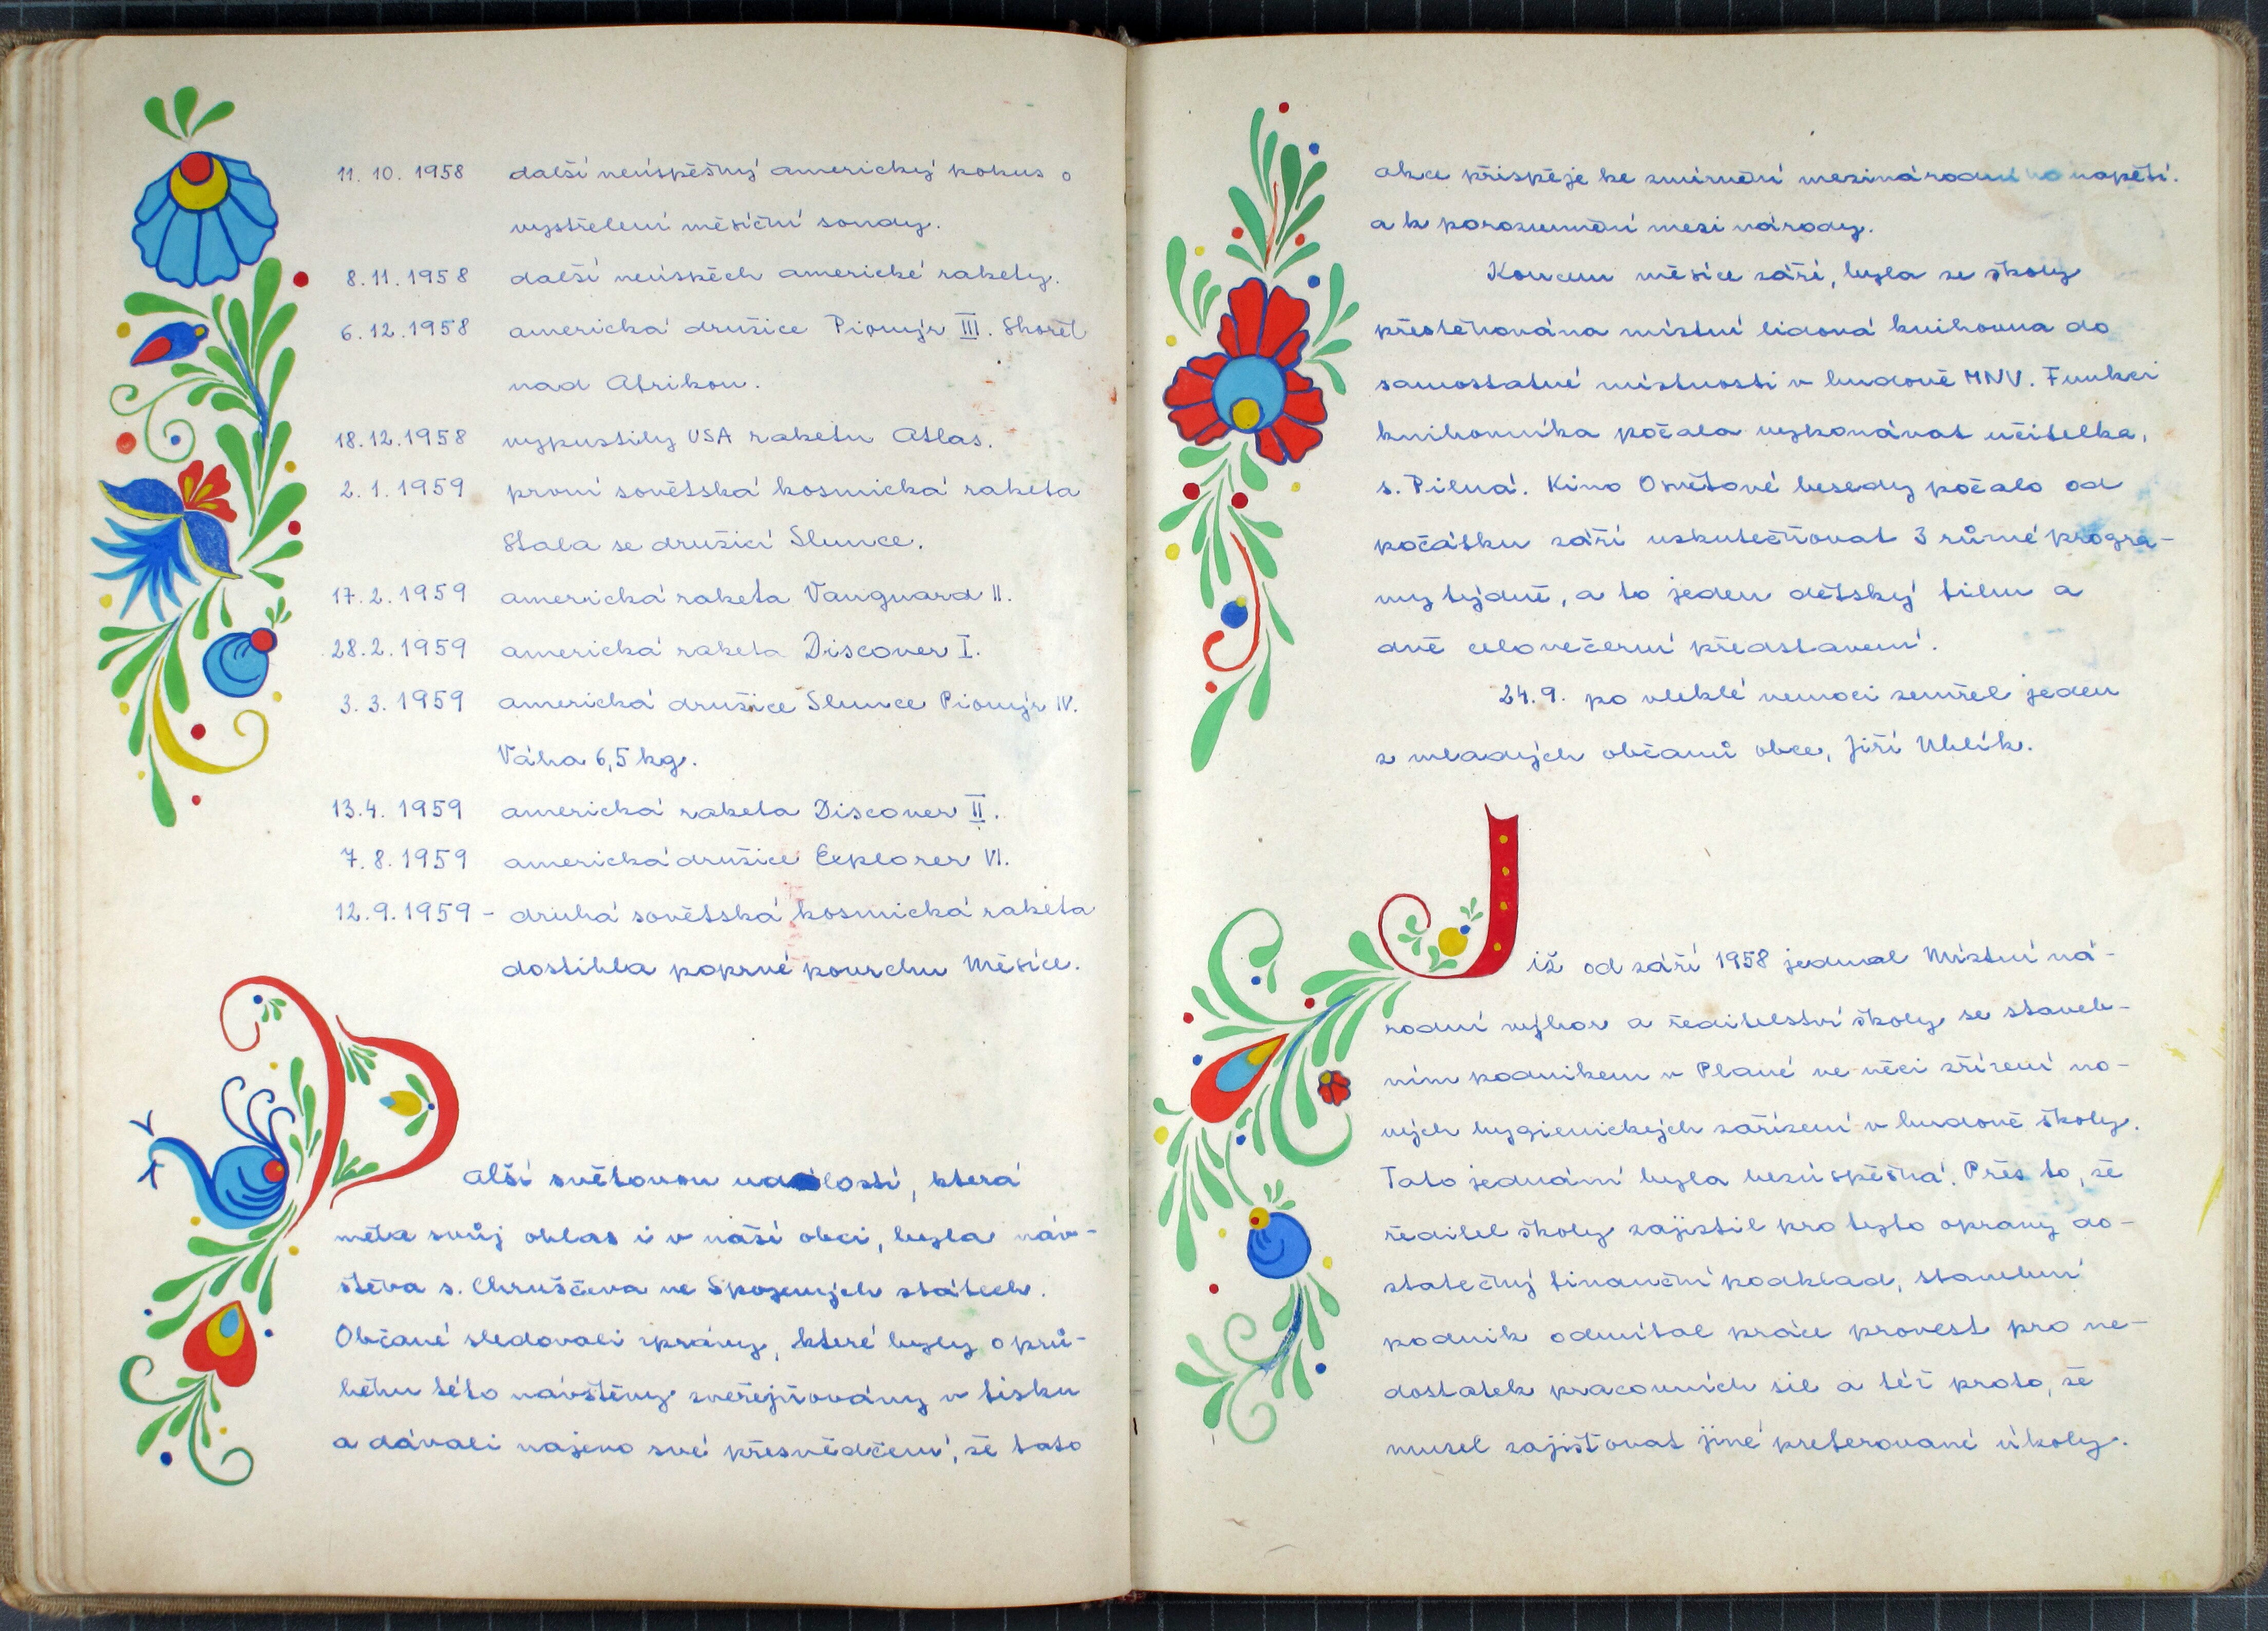 11. 10. 1958 další neúspěšný americký pokus o
vystřelení měsíční sondy.
8. 11. 1958 další neúspěch americké rakety.
6. 12. 1958 americká družice Pionýr III. Shořel
nad Afrikou.
18. 12. 1958 vypustily USA raketu Atlas.
2. 1. 1959 první sovětská kosmická raketa
Stala se družicí Slunce.
17. 2. 1959 americká raketa Vanguard II.
28. 2. 1959 americká raketa Discover I.
3. 3. 1959 americká družice Slunce Pionýr IV.
Váha 6,5 kg.
13. 4. 1959 americká raketa Discover II.
7. 8. 1959 americká družice Explorer VI.
12. 9. 1959 - druhá sovětská kosmická raketa
dostihla poprvé povrchu Měsíce.
Další světovou událostí, která
měla svůj ohlas i v naší obci, byla náv-
štěva s. Chruščeva ve Spojených státech.
Občané sledovali zprávy, které byly o prů-
běhu této návštěvy zveřejňovány v tisku
a dávali najevo své přesvědčení, že tato
akce přispěje ke zmírnění mezinárodního napětí.
a k porozumění mezi národy.
Koncem měsíce září, byla ze školy
přestěhována místní lidová knihovna do
samostatné místnosti v budově MNV. Funkci
knihovníka počala vykonávat učitelka,
s. Pilná. Kino Osvětové besedy počalo od
počátku září uskutečňovat 3 různé progra-
my týdně, a to jeden dětský film a
dvě celovečerní představení.
24. 9. po vleklé nemoci zemřel jeden
z mladých občanů obce, Jiří Uhlík.
Již od září 1958 jednal Místní ná-
rodní výbor a ředitelství školy se staveb-
ním podnikem v Plané ve věci zřízení no-
vých hygienických zařízení v budově školy.
Tato jednání byla bezúspěšná. Přes to, že
ředitel školy zajistil pro tyto opravy do-
statečný finanční podklad, stavební
podnik odmítal práce provést pro ne-
dostatek pracovních sil a též proto, že
musel zajišťovat jiné preferované úkoly.